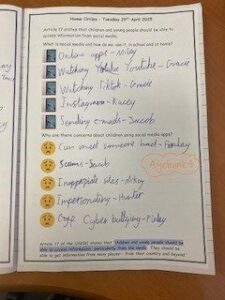 Home Circles - Tuesday 29th April 2025
Article 17 states that children and young people should be able to
access information from social media.
What is social media and how do we use it in school and at home?
Online apps - Miley
Watching Youtube Youtube - Gracie
Watching TikTok - Gracie
Instagram - Kacey
Sending emails - Jacob
Why are there concerns about using social media apps?
Can meet someone bad -
Scams - Jacob
Inappropriate sites - Miley
Impersonating - Hunter
Cyber bullying - Miley
Article 17 of the UNCRC states that Children and young people should be
able to access information, particularly from the media. They should be
able to get information from many places - from their country and beyond